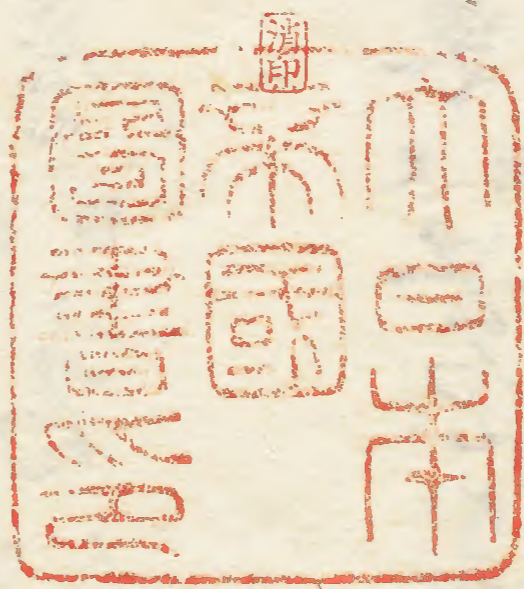 消印
大日本
帝國
圖書印